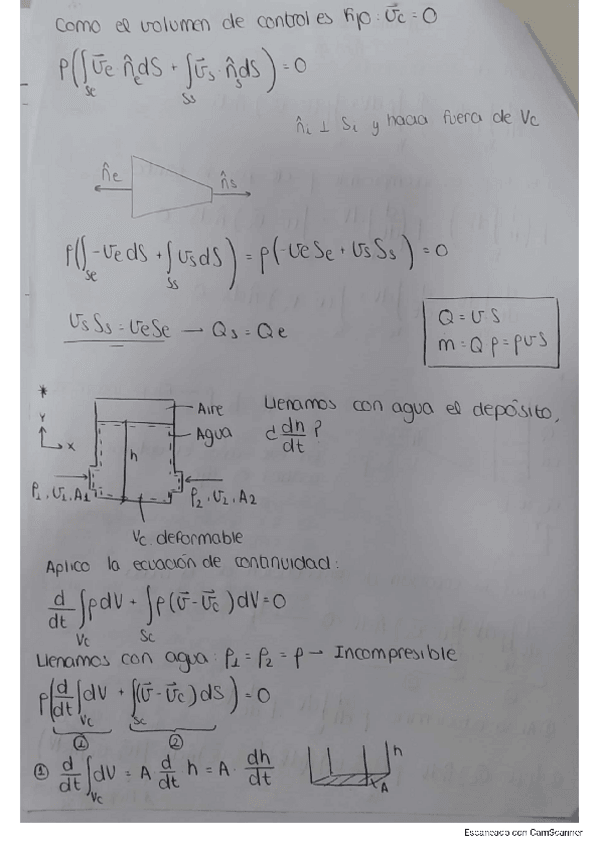 Como el volumen de control es fijo: v⃗c = 0
ρ(∫Se v⃗e · n̂e dS + ∫Ss v⃗s · n̂s dS) = 0
n̂i ⊥ Si y hacia fuera de Vc
n̂e n̂s
ρ(∫Se -ve dS + ∫Ss vs dS) = ρ(-ve Se + vs Ss) = 0
vs Ss = ve Se → Qs = Qe
Q = v S
ṁ = Q ρ = ρ v S
*
Llenamos con agua el depósito,
¿ dh/dt ?
Y
x
Aire
Agua
h
ρ1, v1, A1
ρ2, v2, A2
Vc deformable
Aplico la ecuación de continuidad:
d/dt ∫Vc ρ dV + ∫Sc ρ (v⃗ - v⃗c) dV = 0
Llenamos con agua: ρ1 = ρ2 = ρ → Incompresible
ρ(d/dt ∫Vc dV + ∫Sc (v⃗ - v⃗c) dS) = 0
① ②
① d/dt ∫Vc dV = A d/dt h = A · dh/dt
h
A
Escaneado con CamScanner